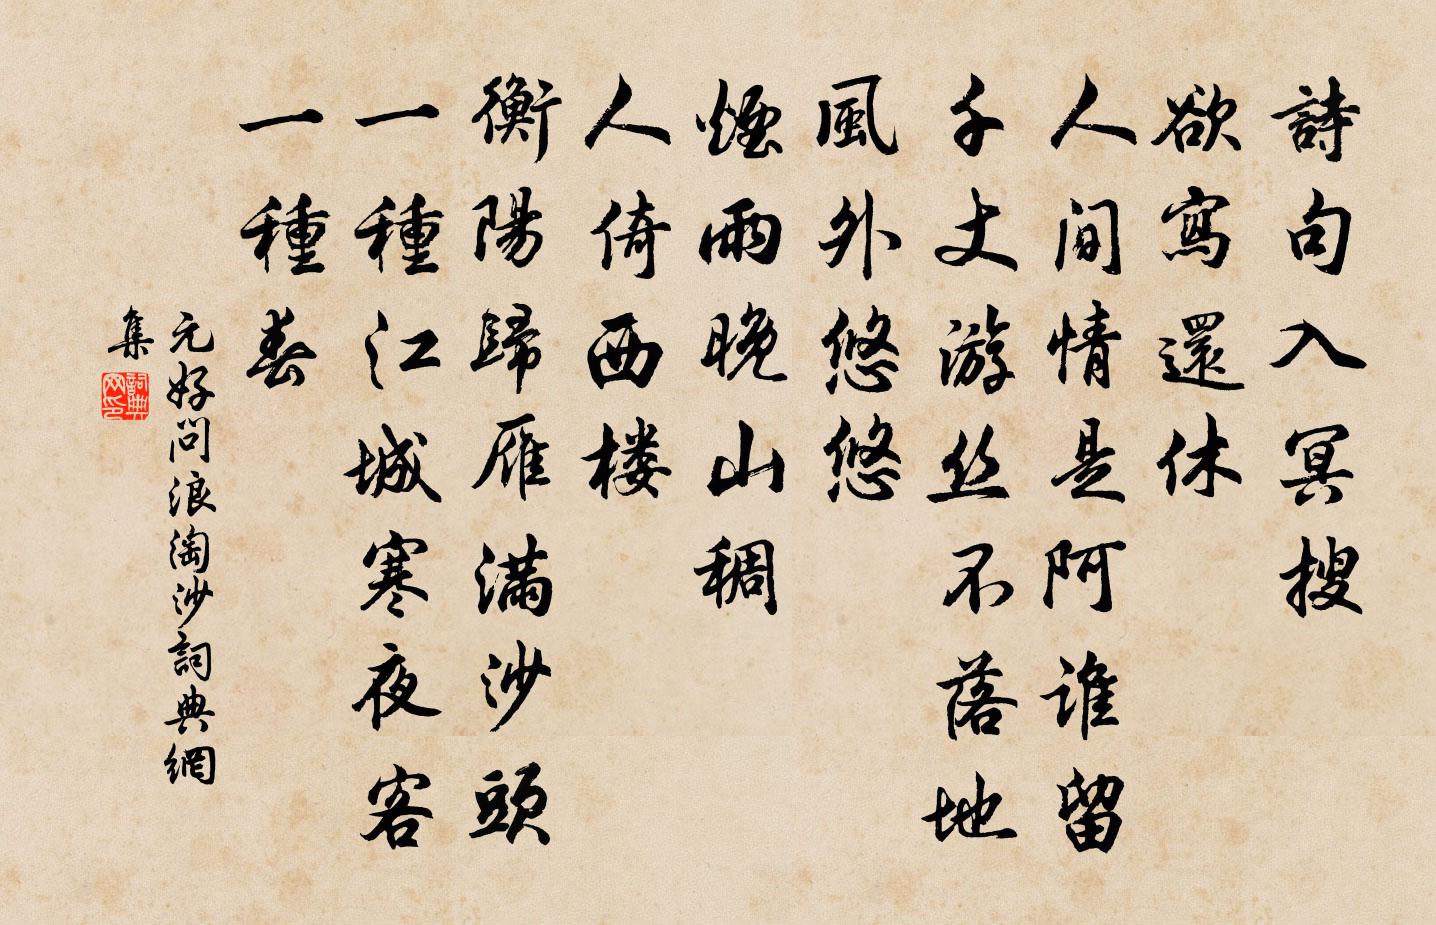 詩句入冥搜
欲寫還休
人间情是阿谁留
千丈游丝不落地
風外悠悠
煙雨晚山稠
人倚西楼
衡陽歸雁满沙頭
一種江城寒夜客
一種春
元好问浪淘沙詞典網
集
詞典
网印